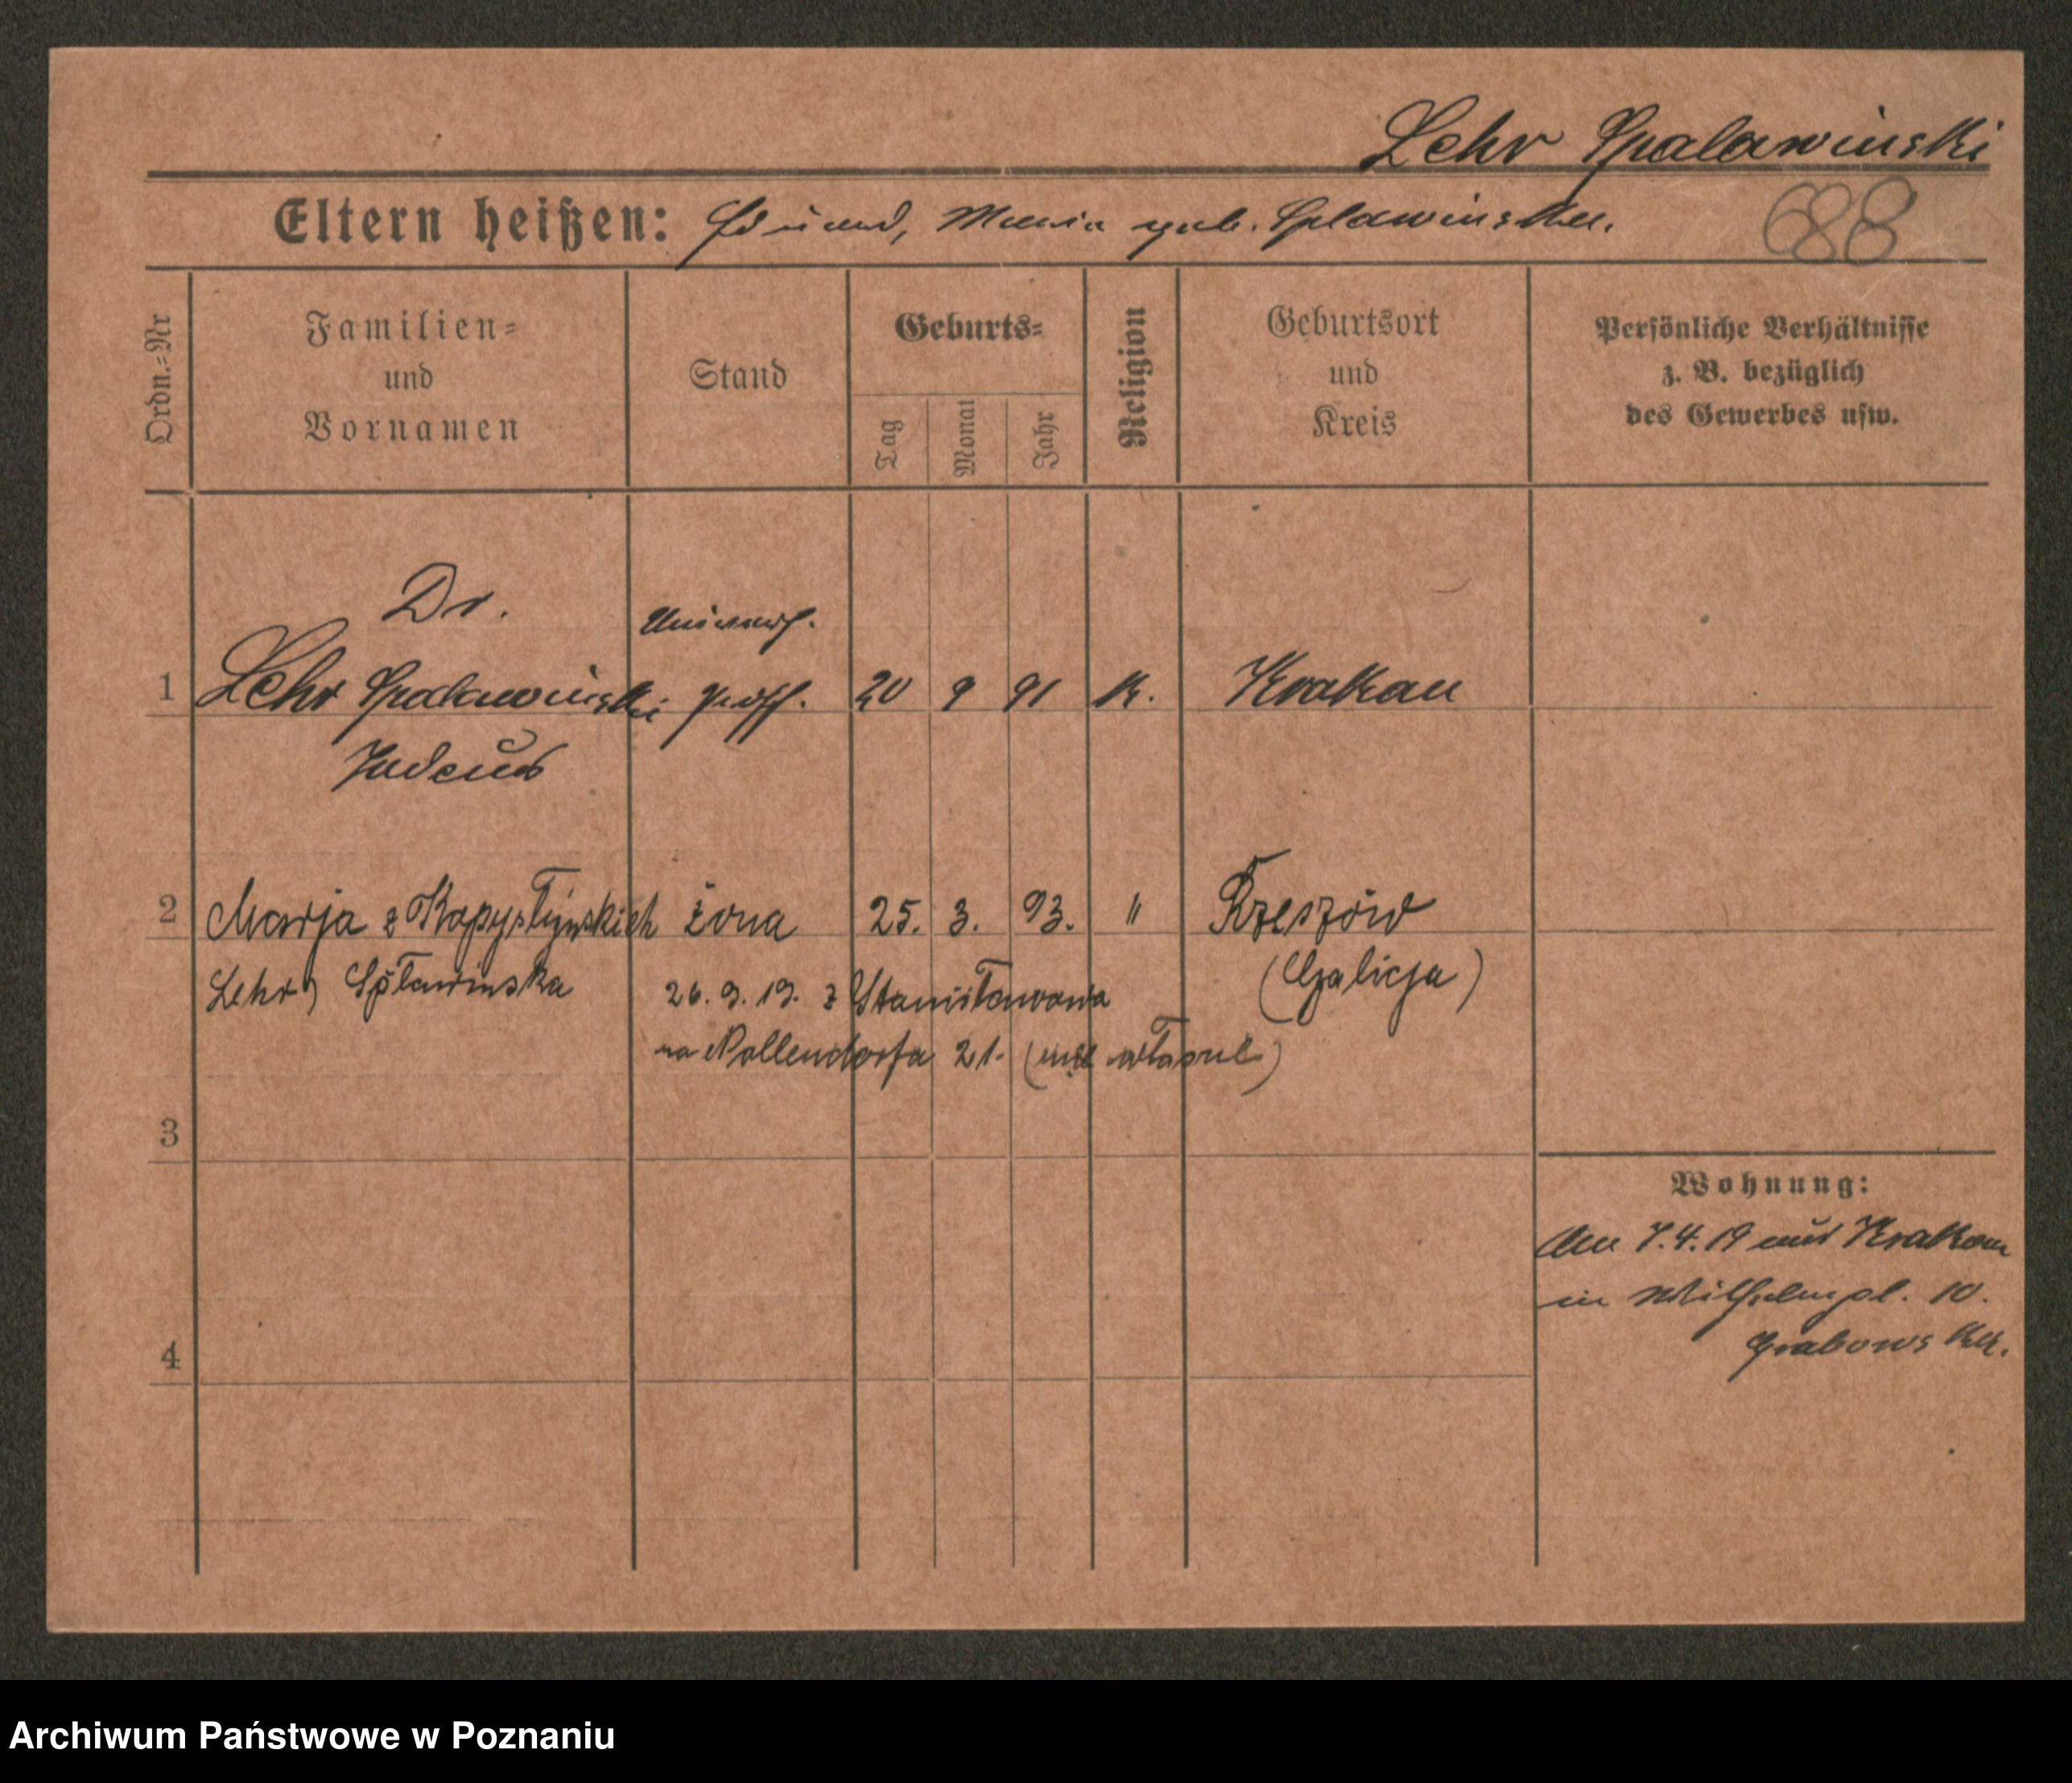 Lehr Spalawinski
Eltern heißen: Eduard, Maria geb. Splawinska.
688
Ordn.=Nr
Familien=
und
Vornamen
Stand
Geburts=
Tag
Monat
Jahr
Religion
Geburtsort
und
Kreis
Persönliche Verhältnisse
z. B. bezüglich
des Gewerbes usw.
Dr.
Univers.
1 Lehr Spalawinski Proff. 20 9 91 K. Krakau
Tadeus
2 Marja z Kapystyńskich żona 25. 3. 93. " Rzeszów
Lehr Spławinska (Galicja)
26. 9. 19. z Stanisławowa
na Nollendorfa 21. (własne)
3
Wohnung:
Am 7.4.19 aus Krakau
in Wilhelmpl. 10.
4 Grabowska.
Archiwum Państwowe w Poznaniu